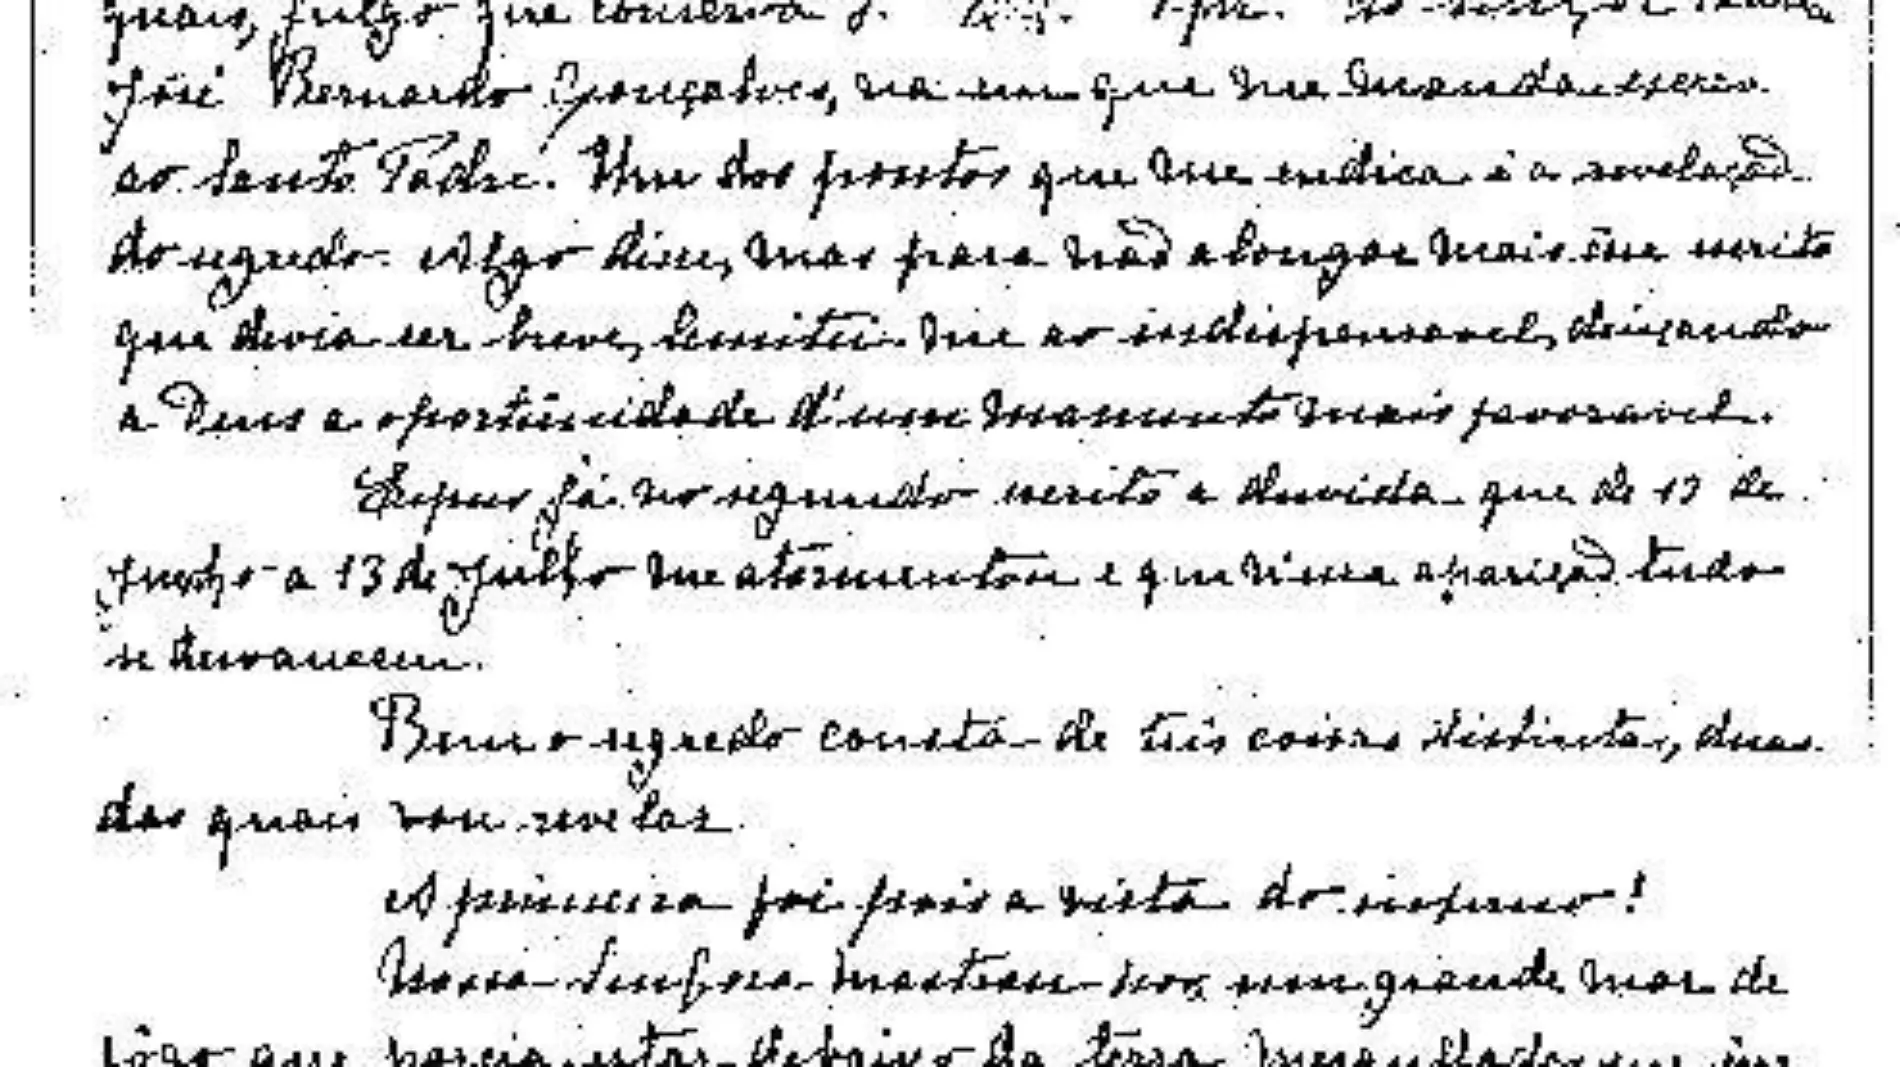 quais, julgo que conserva
José Bernardo Gonçalves, na em que me manda escrever
ao Santo Padre. Um dos pontos que me indica é a revelação
do segredo. Algo disse, mas para não alongar mais esse escrito
que devia ser breve, limitei-me ao indispensavel, deixando
a Deus a oportunidade d'um momento mais favoravel.
Expus já no segundo escrito a duvida que de 13 de
Junho a 13 de Julho me atormentou e que n'essa aparição tudo
se desvaneceu.
Bem o segredo consta de três coisas distintas, duas
das quais vou revelar.
A primeira foi pois a vista do inferno!
Nossa Senhora mostrou-nos um grande mar de
fôgo que parecia estar debaixo da terra. Mergulhados em êsse